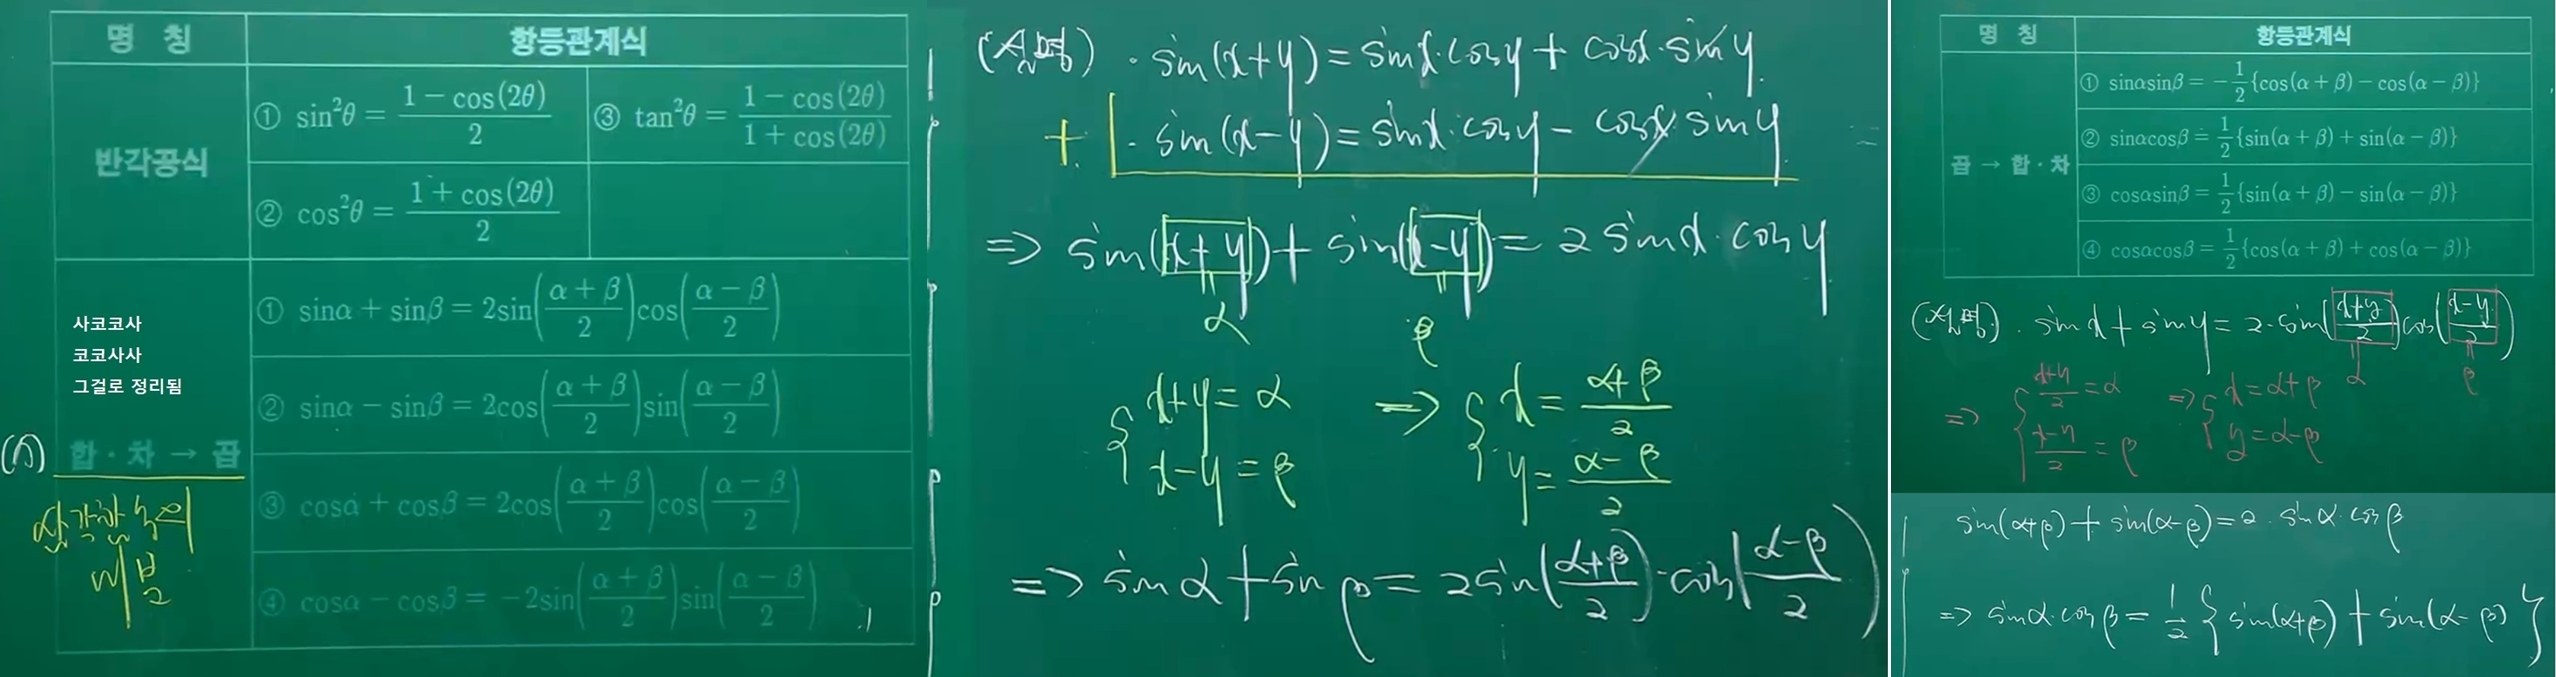 명 칭 항등관계식
반각공식
① sin²θ = (1 − cos(2θ))/2 ③ tan²θ = (1 − cos(2θ))/(1 + cos(2θ))
② cos²θ = (1 + cos(2θ))/2
사코코사
코코사사
그걸로 정리됨
합 · 차 → 곱
(ㄱ)
삼각함수의
미분
① sinα + sinβ = 2sin((α + β)/2)cos((α − β)/2)
② sinα − sinβ = 2cos((α + β)/2)sin((α − β)/2)
③ cosα + cosβ = 2cos((α + β)/2)cos((α − β)/2)
④ cosα − cosβ = −2sin((α + β)/2)sin((α − β)/2)
(설명) · sin(x+y) = sinx·cosy + cosx·siny
+ · sin(x−y) = sinx·cosy − cosx·siny
=> sin(x+y) + sin(x−y) = 2 sinx·cosy
= α = β
{ x+y = α => { x = (α+β)/2
x−y = β y = (α−β)/2
=> sinα + sinβ = 2sin((α+β)/2)·cos((α−β)/2)
명 칭 항등관계식
곱 → 합 · 차
① sinαsinβ = −1/2{cos(α + β) − cos(α − β)}
② sinαcosβ = 1/2{sin(α + β) + sin(α − β)}
③ cosαsinβ = 1/2{sin(α + β) − sin(α − β)}
④ cosαcosβ = 1/2{cos(α + β) + cos(α − β)}
(설명) · sinx + siny = 2·sin((x+y)/2)cos((x−y)/2)
= α = β
=> { (x+y)/2 = α => { x = α+β
(x−y)/2 = β y = α−β
sin(α+β) + sin(α−β) = 2·sinα·cosβ
=> sinα·cosβ = 1/2 { sin(α+β) + sin(α−β) }